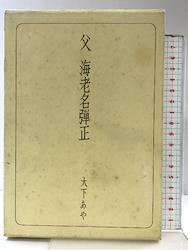 父 海老名彈正
大下あや